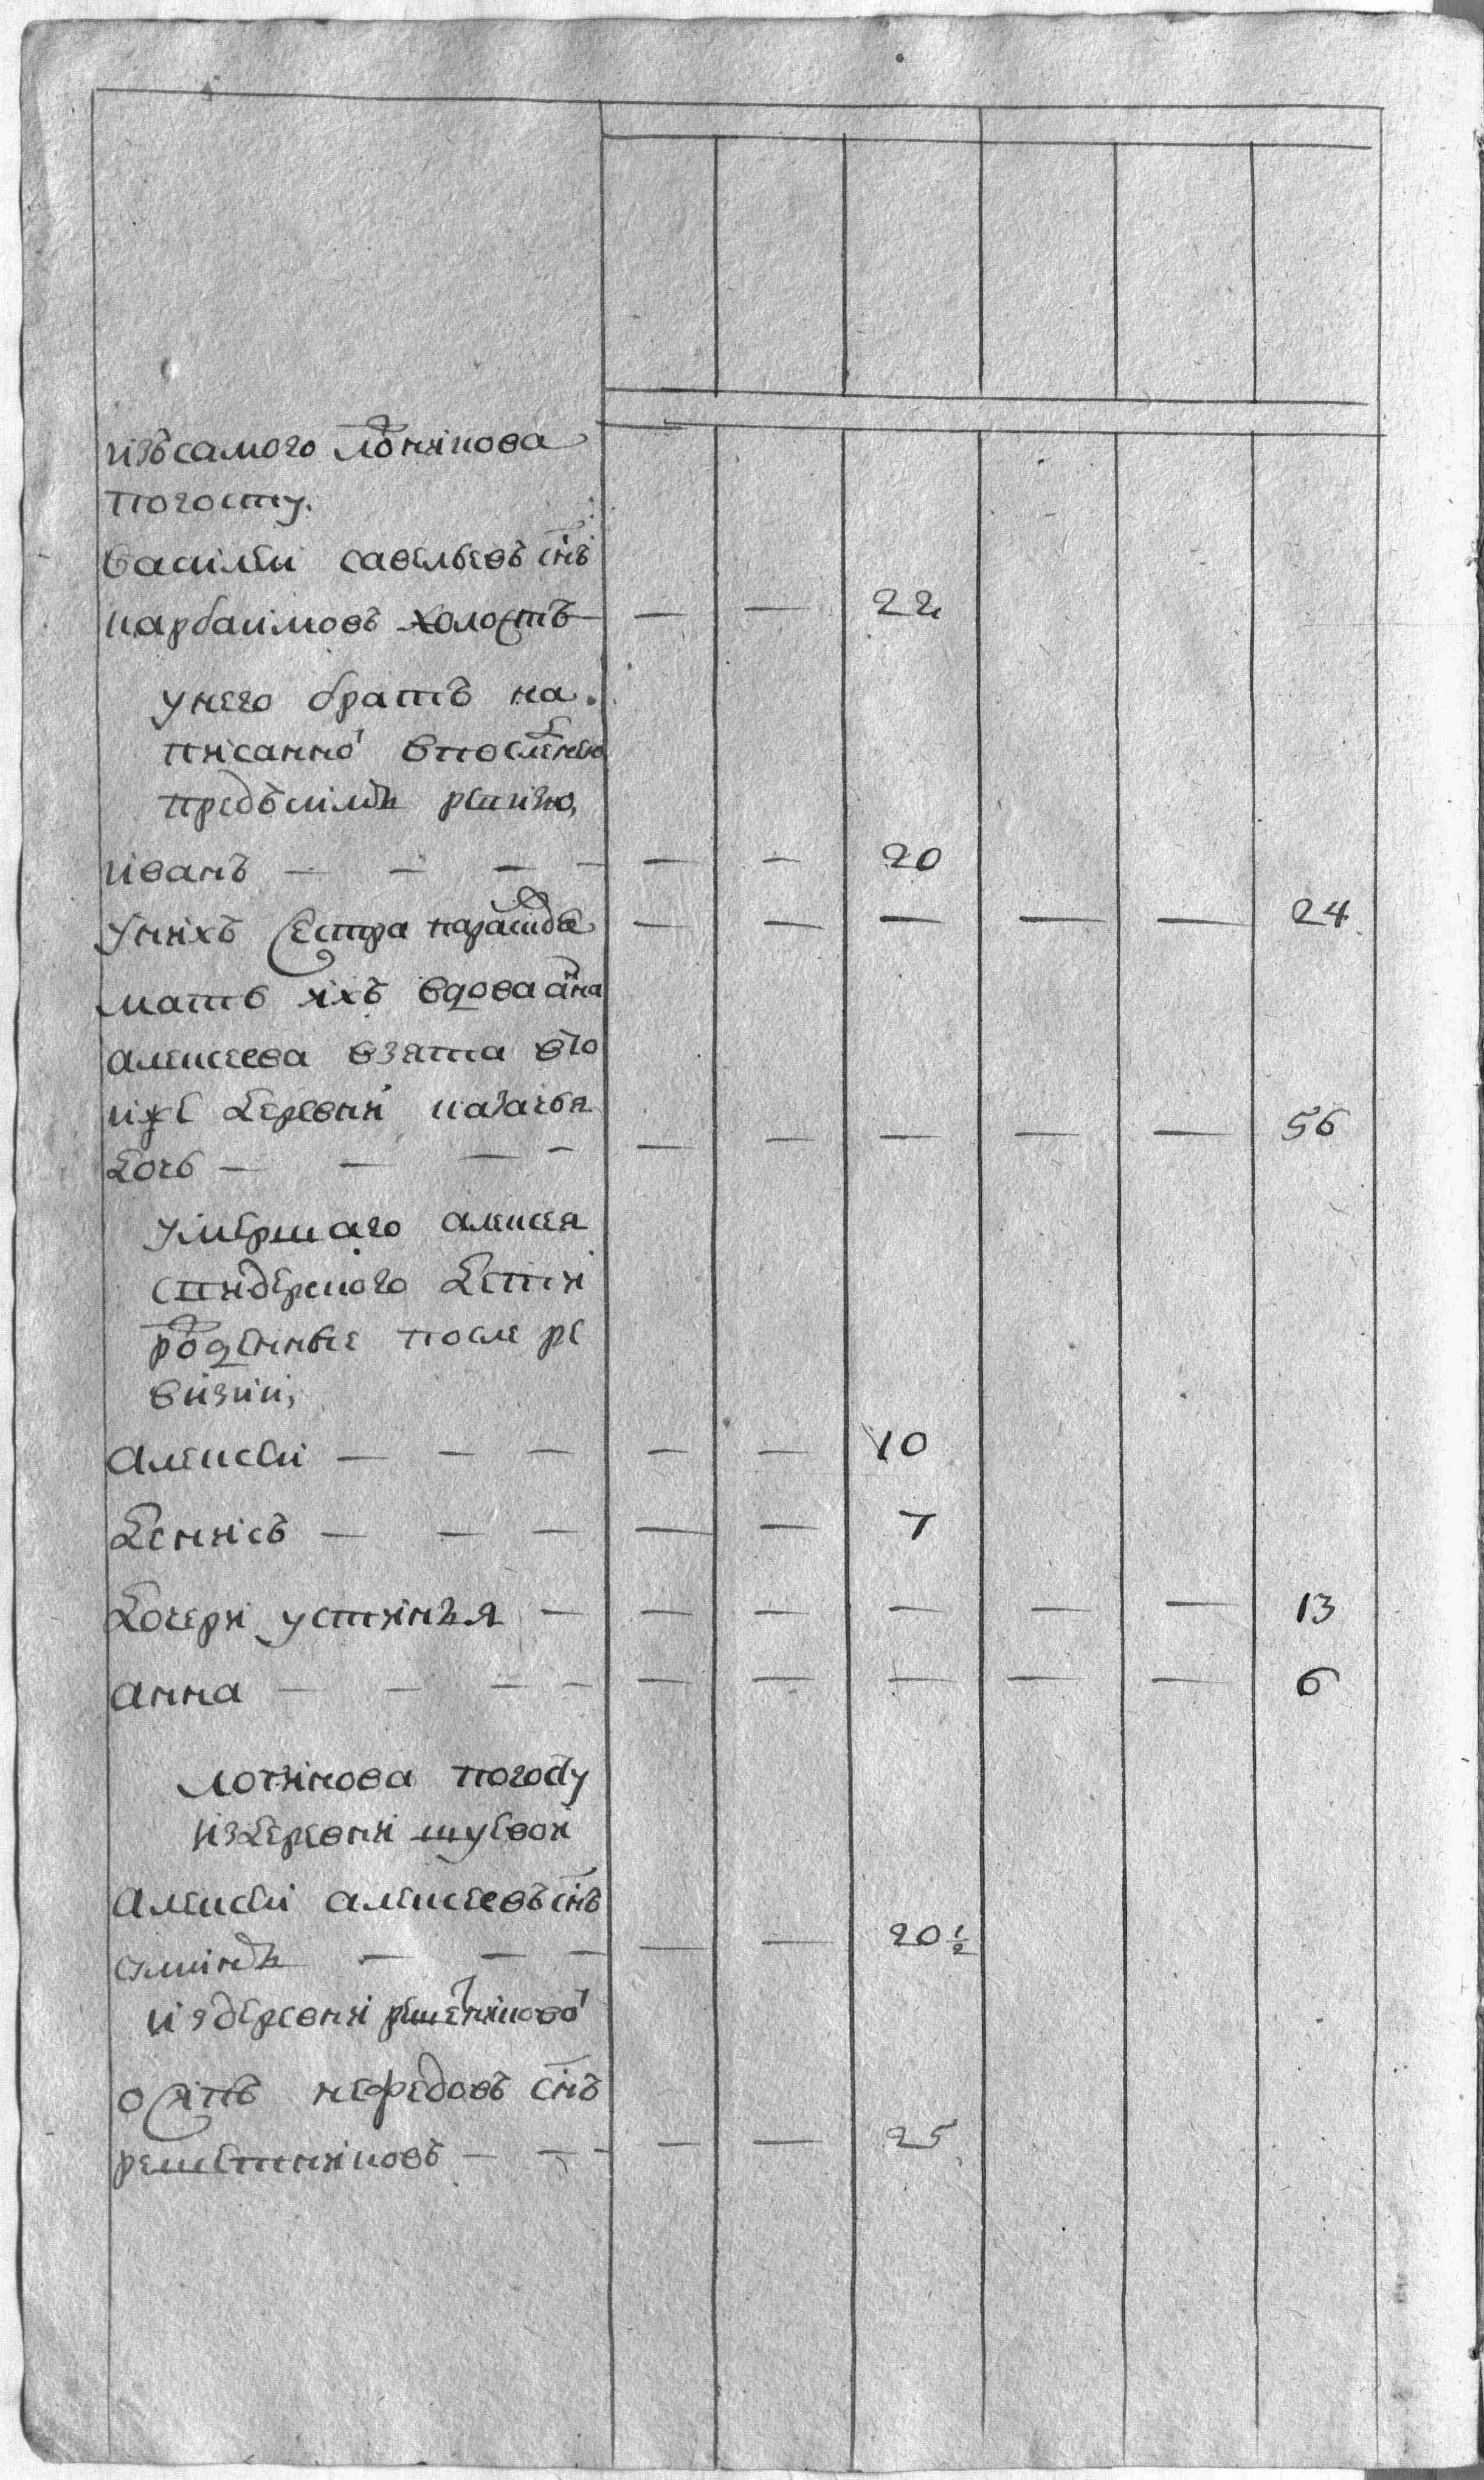 изъ самого лотчикова
погосту.
василеи савельевъ снъ
карбаиновъ холостъ — — 22
унего братъ на
писанно впоследнею
предъ симъ ревизию,
иванъ — — — — — — 20
унихъ сестра парасковья — — — — — 24
мать ихъ вдова анна
алексеева взята вто
иже деревни казачья
дочь — — — — — — — — — 56
умершаго алексея
сидерского дети
рожденные после ре
визии,
алексеи — — — — — 10
денисъ — — — — — 7
дочери устинья — — — — — — 13
анна — — — — — — — — — 6
лотчикова погосту
из деревни шуевои
алексеи алексеевъ снъ
— — — — — 20 1/2
из деревни решетниково
осипъ нефедовъ снъ
решетниковъ — — — — — 25